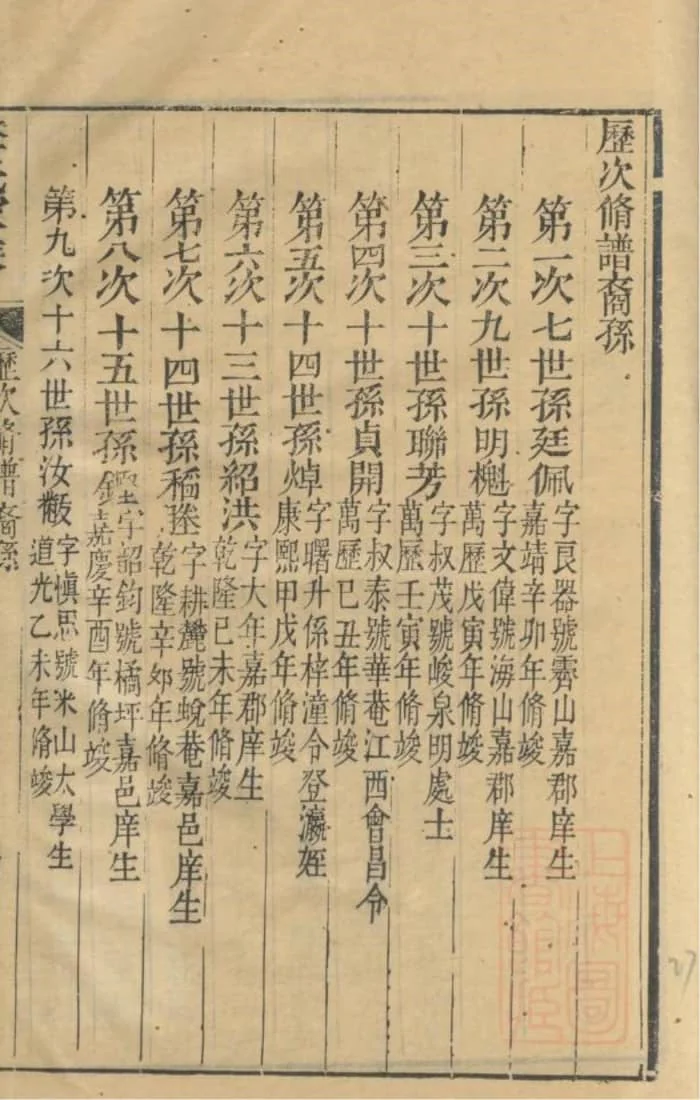 歷次脩譜裔孫
第一次七世孫廷佩字良器號霽山嘉郡庠生
嘉靖辛卯年脩竣
第二次九世孫明櫆字文偉號海山嘉郡庠生
萬歷戊寅年脩竣
第三次十世孫聯芳字叔茂號峻泉明處士
萬歷壬寅年脩竣
第四次十世孫貞開字叔泰號華菴江西會昌令
萬歷己丑年脩竣
第五次十四世孫焯字曙升係梓潼令登瀛姪
康熙甲戊年脩竣
第六次十三世孫紹洪字大年嘉郡庠生
乾隆己未年脩竣
第七次十四世孫稻塍字耕麓號蛻菴嘉邑庠生
乾隆辛夘年脩竣
第八次十五世孫鏗字韶鈞號橘坪嘉邑庠生
嘉慶辛酉年脩竣
第九次十六世孫汝敝字愼思號米山太學生
道光乙未年脩竣
歷次脩譜裔孫
27